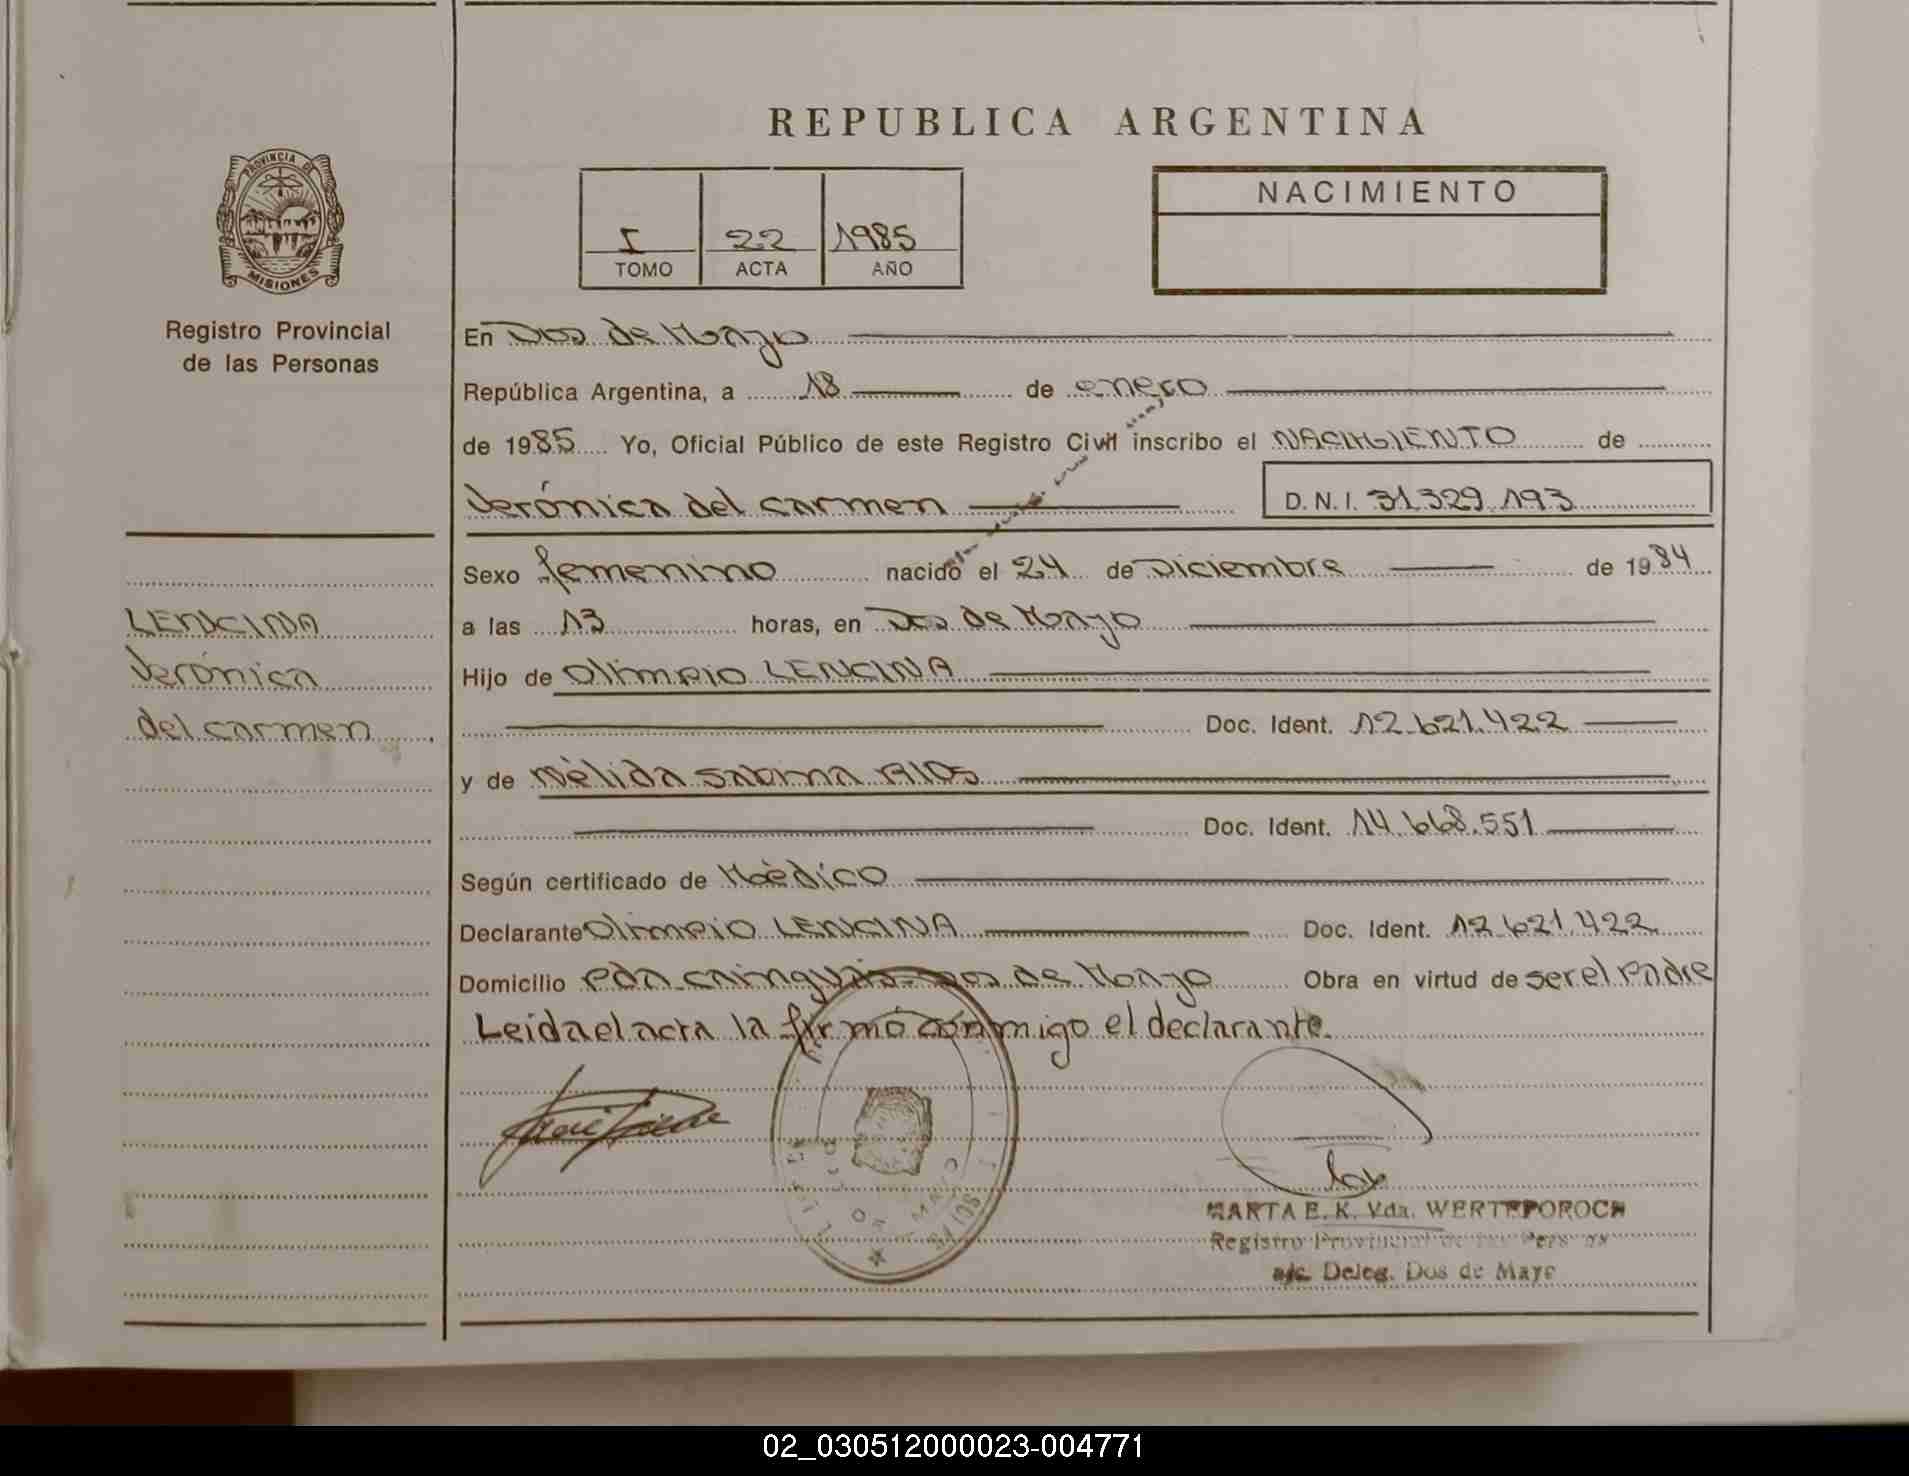 REPUBLICA ARGENTINA
PROVINCIA DE
MISIONES
Registro Provincial
de las Personas
I 22 1985
TOMO ACTA AÑO
NACIMIENTO
En Dos de Mayo
República Argentina, a 18 de enero
de 1985 Yo, Oficial Público de este Registro Civil inscribo el NACIMIENTO de
Verónica del carmen D.N.I. 31.329.193
Sexo femenino nacido el 24 de Diciembre de 1984
a las 13 horas, en Dos de Mayo
Hijo de Olimpio LENCINA
Doc. Ident. 12.621.422
y de Nélida Sabina RIOS
Doc. Ident. 14.668.551
Según certificado de Médico
Declarante Olimpio LENCINA Doc. Ident. 12.621.422
Domicilio Pda Cainguás Dos de Mayo Obra en virtud de ser el Padre
Leida el acta la firmó conmigo el declarante.
LENCINA
Verónica
del carmen
MARTA E. K. Vda. WERTEPOROCH
Registro Provincial de las Personas
a/c. Deleg. Dos de Mayo
02_030512000023-004771